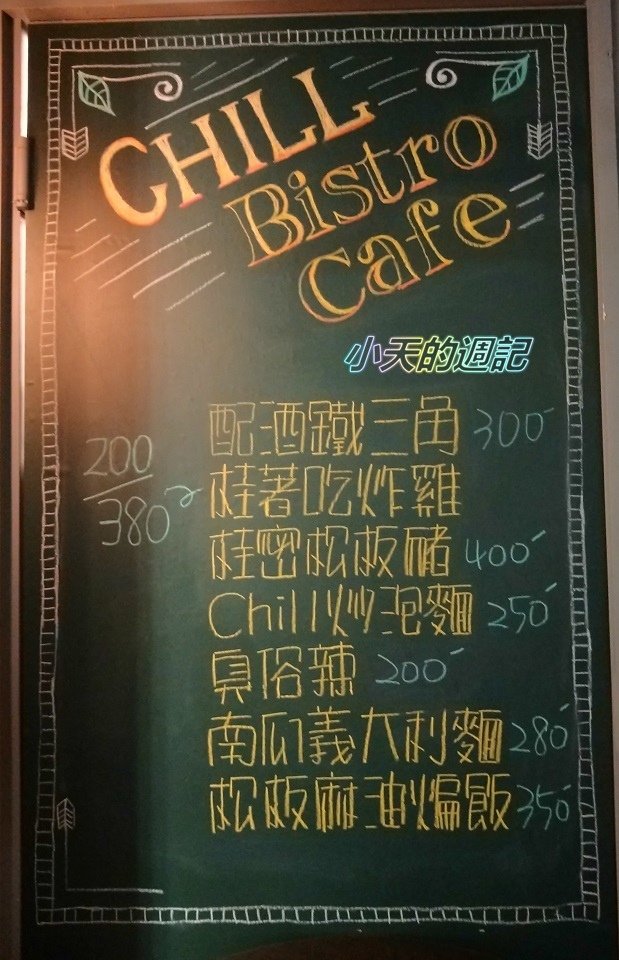 CHILL
Bistro
Cafe
小天的週記
配酒鐵三角 300
200
380 桂著吃炸雞
桂密松板豬 400
Chill炒泡麵 250
臭俗辣 200
南瓜義大利麵 280
松板麻油煸飯 350